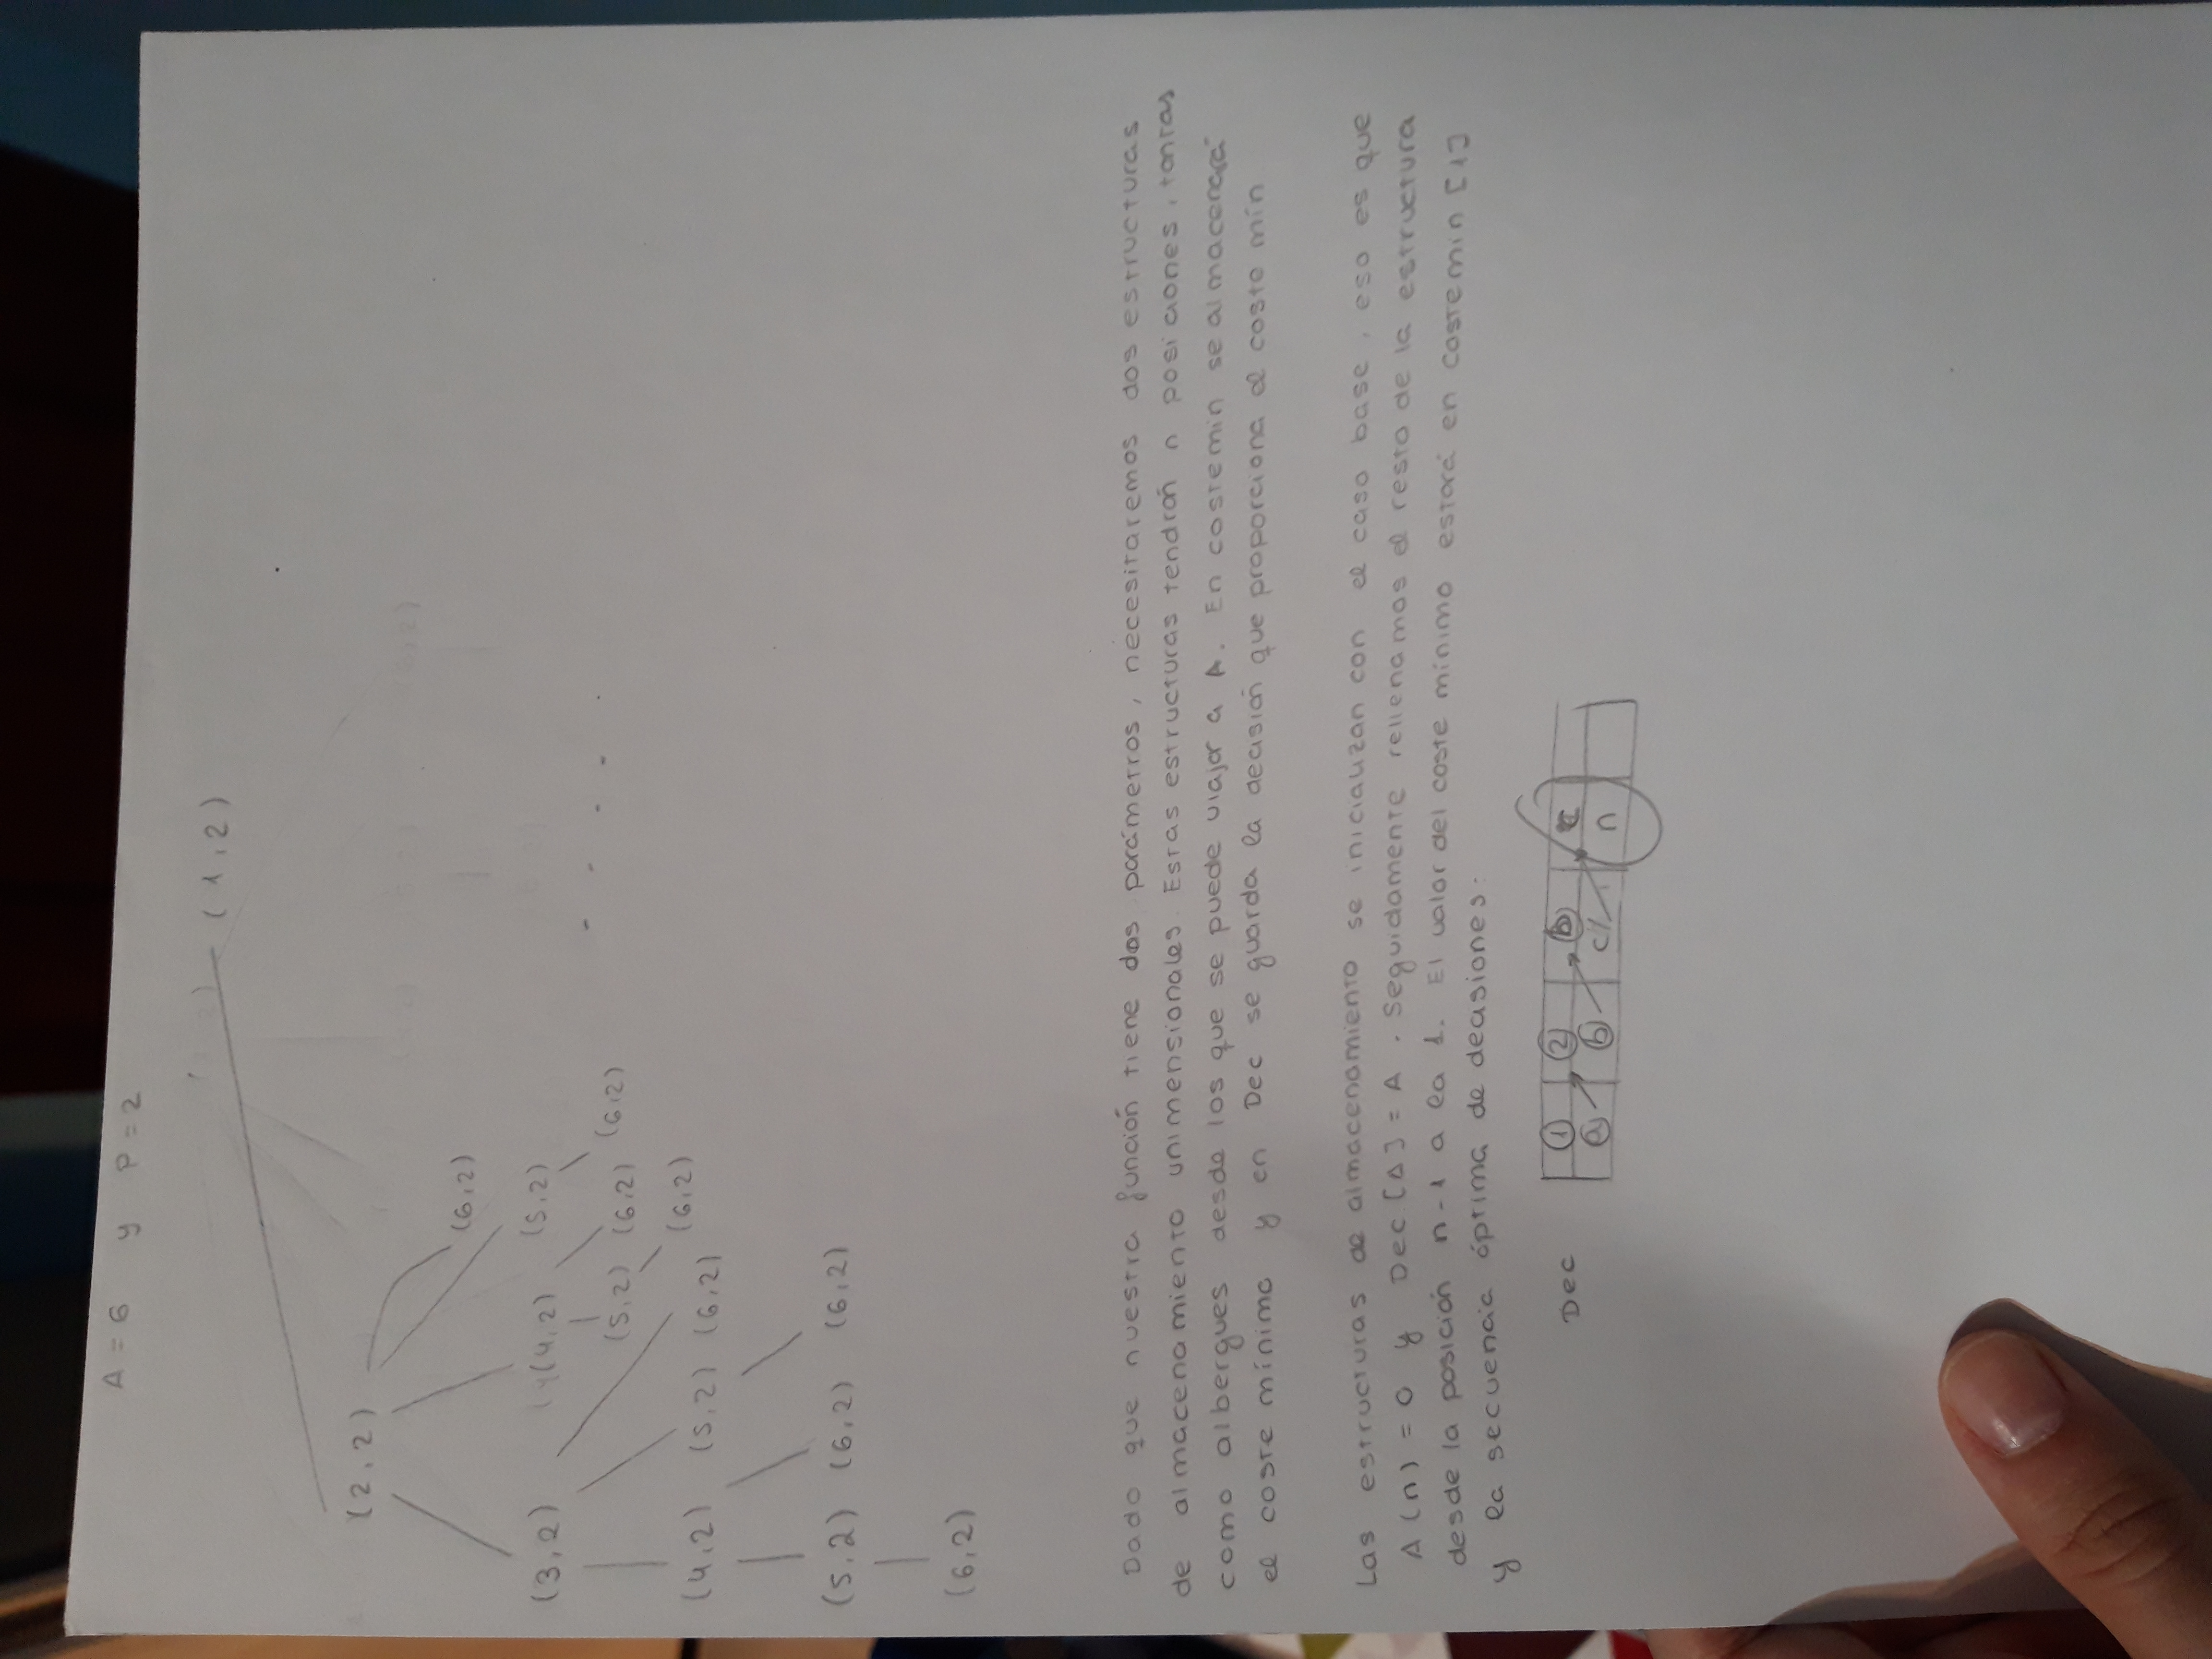 A = 6 y P = 2
(1,2)
(2,2)
(6,2)
(3,2) (4,2) (5,2)
(5,2) (6,2) (6,2)
(6,2)
(4,2) (5,2) (6,2)
(5,2) (6,2) (6,2)
(6,2)
Dado que nuestra función tiene dos parámetros, necesitaremos dos estructuras
de almacenamiento unimensionales. Estas estructuras tendrán n posiciones, tantas
como albergues desde los que se puede viajar a A. En costemin se almacenará
el coste mínimo y en Dec se guarda la decisión que proporciona el coste mín
Las estructuras de almacenamiento se inicializan con el caso base, eso es que
A(n) = 0 y Dec[A] = A. Seguidamente rellenamos el resto de la estructura
desde la posición n-1 a la 1. El valor del coste mínimo estará en costemin [1]
y la secuencia óptima de decisiones:
Dec
1 2 b c
a b c n